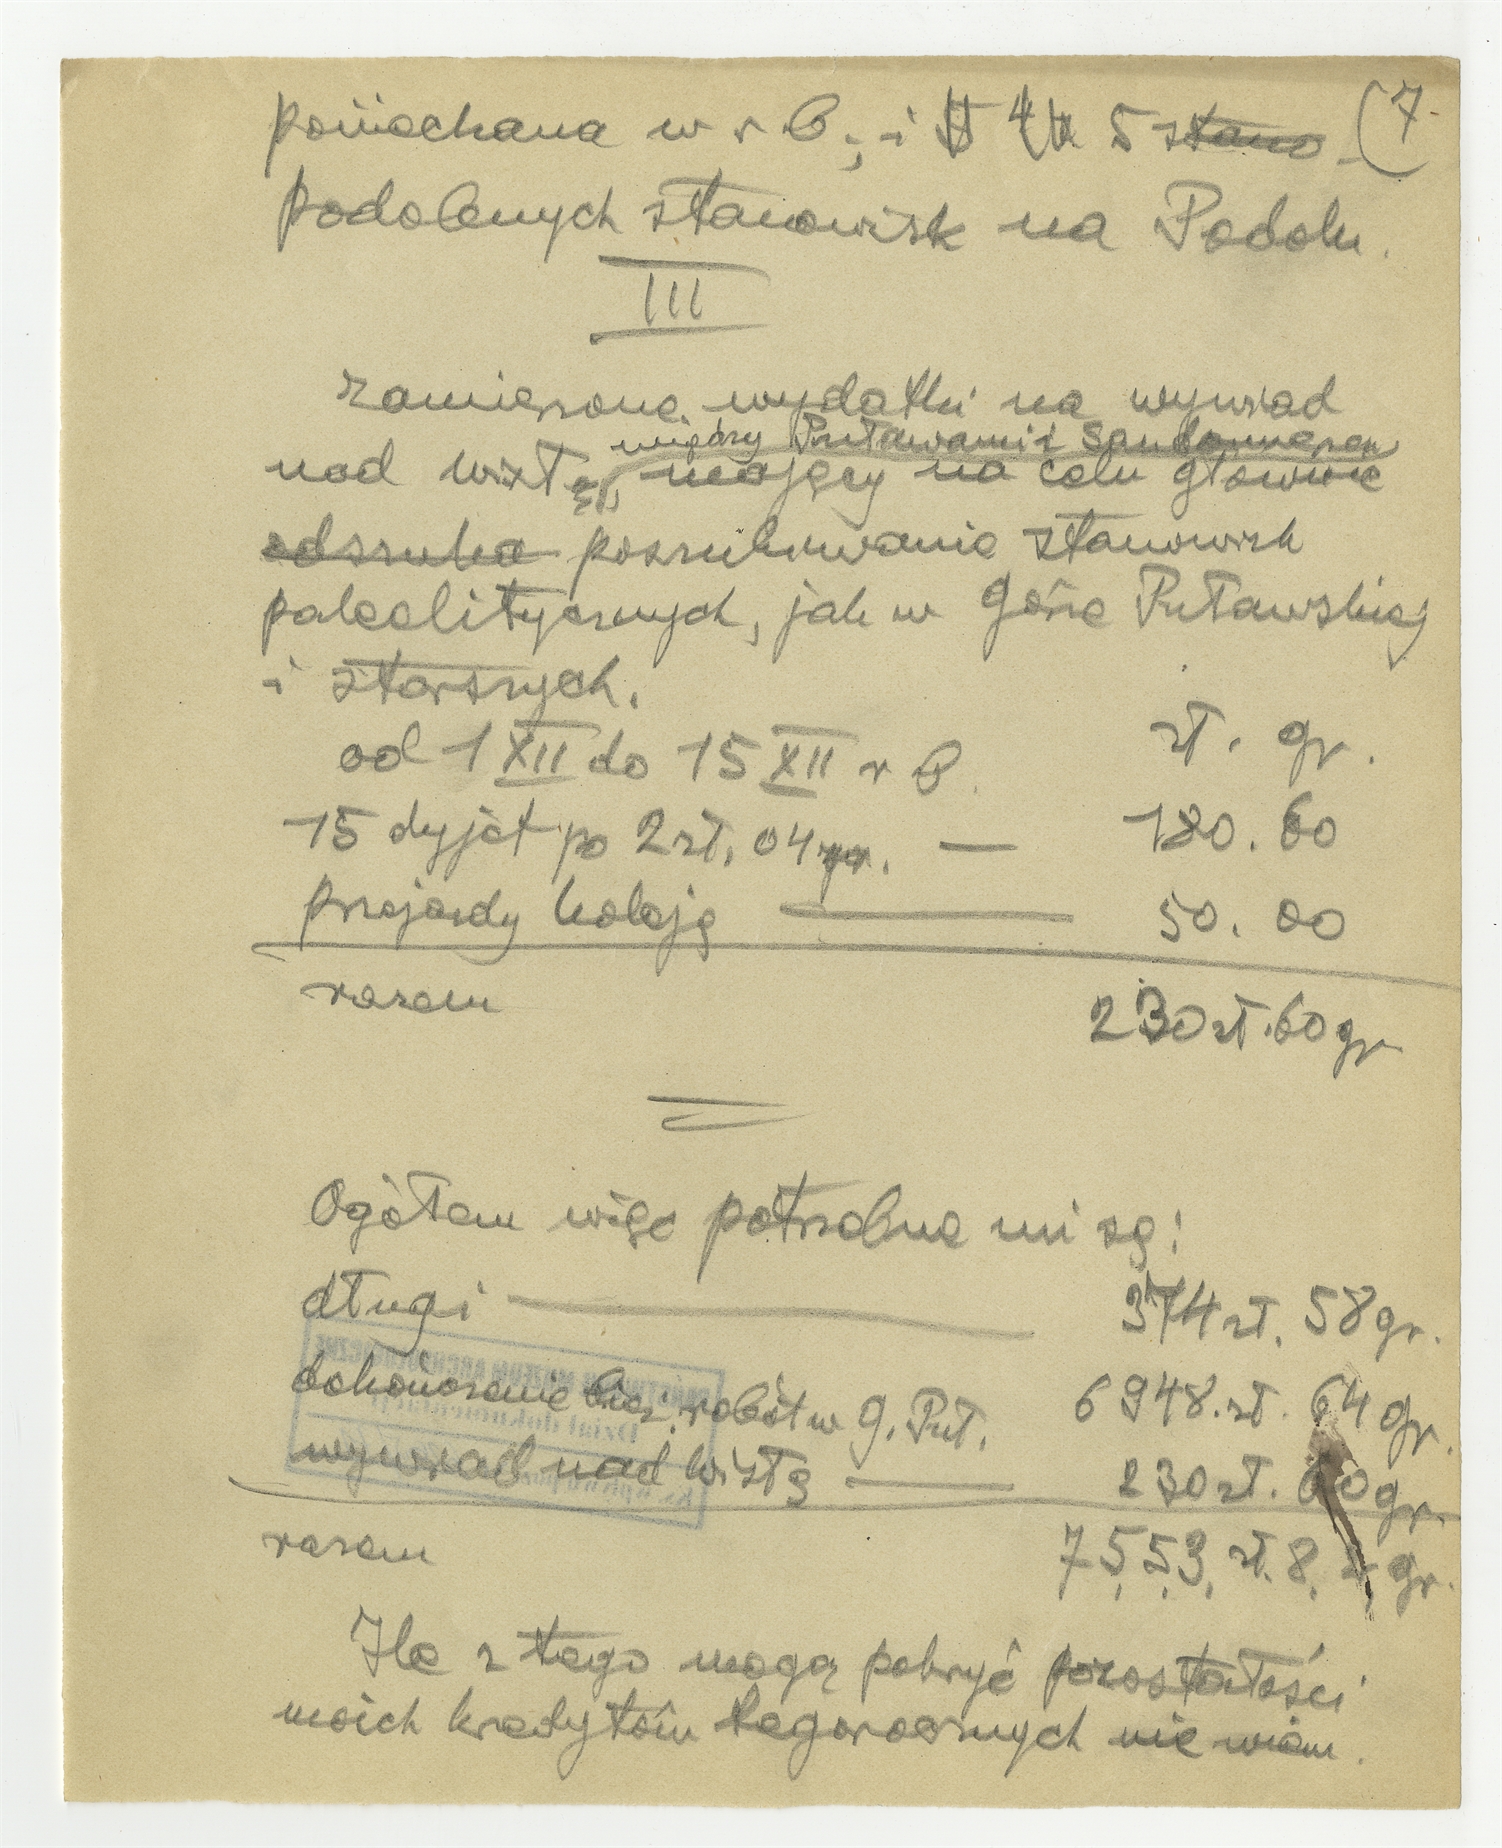 (7.
poniechana w r b; i 4 5 stano
podobnych stanowisk na Podolu.
III
zamierzone wydatki na wywiad
między Puławami i Sandomierzem
nad Wisłą, mający na celu głownie
odszuka poszukiwanie stanowisk
paleolitycznych, jak w Górze Puławskiej
i starszych.
zł. gr.
od 1 XII do 15 XII r b.
15 dyjet po 2 zł. 04 gr. — 180. 60
przejazdy koleją — 50. 00
razem 230 zł. 60 gr
Ogółem więc potrzebne mi są:
długi — 374 zł. 58 gr.
dokończenie bież. robót w G. Puł. 6948. zł. 64 gr.
wywiad nad Wisłą — 230 zł. 60 gr.
razem 7553 zł. 8 gr.
Ile z tego mogą pokryć pozostałości
moich kredytów tegorocznych nie wiem.